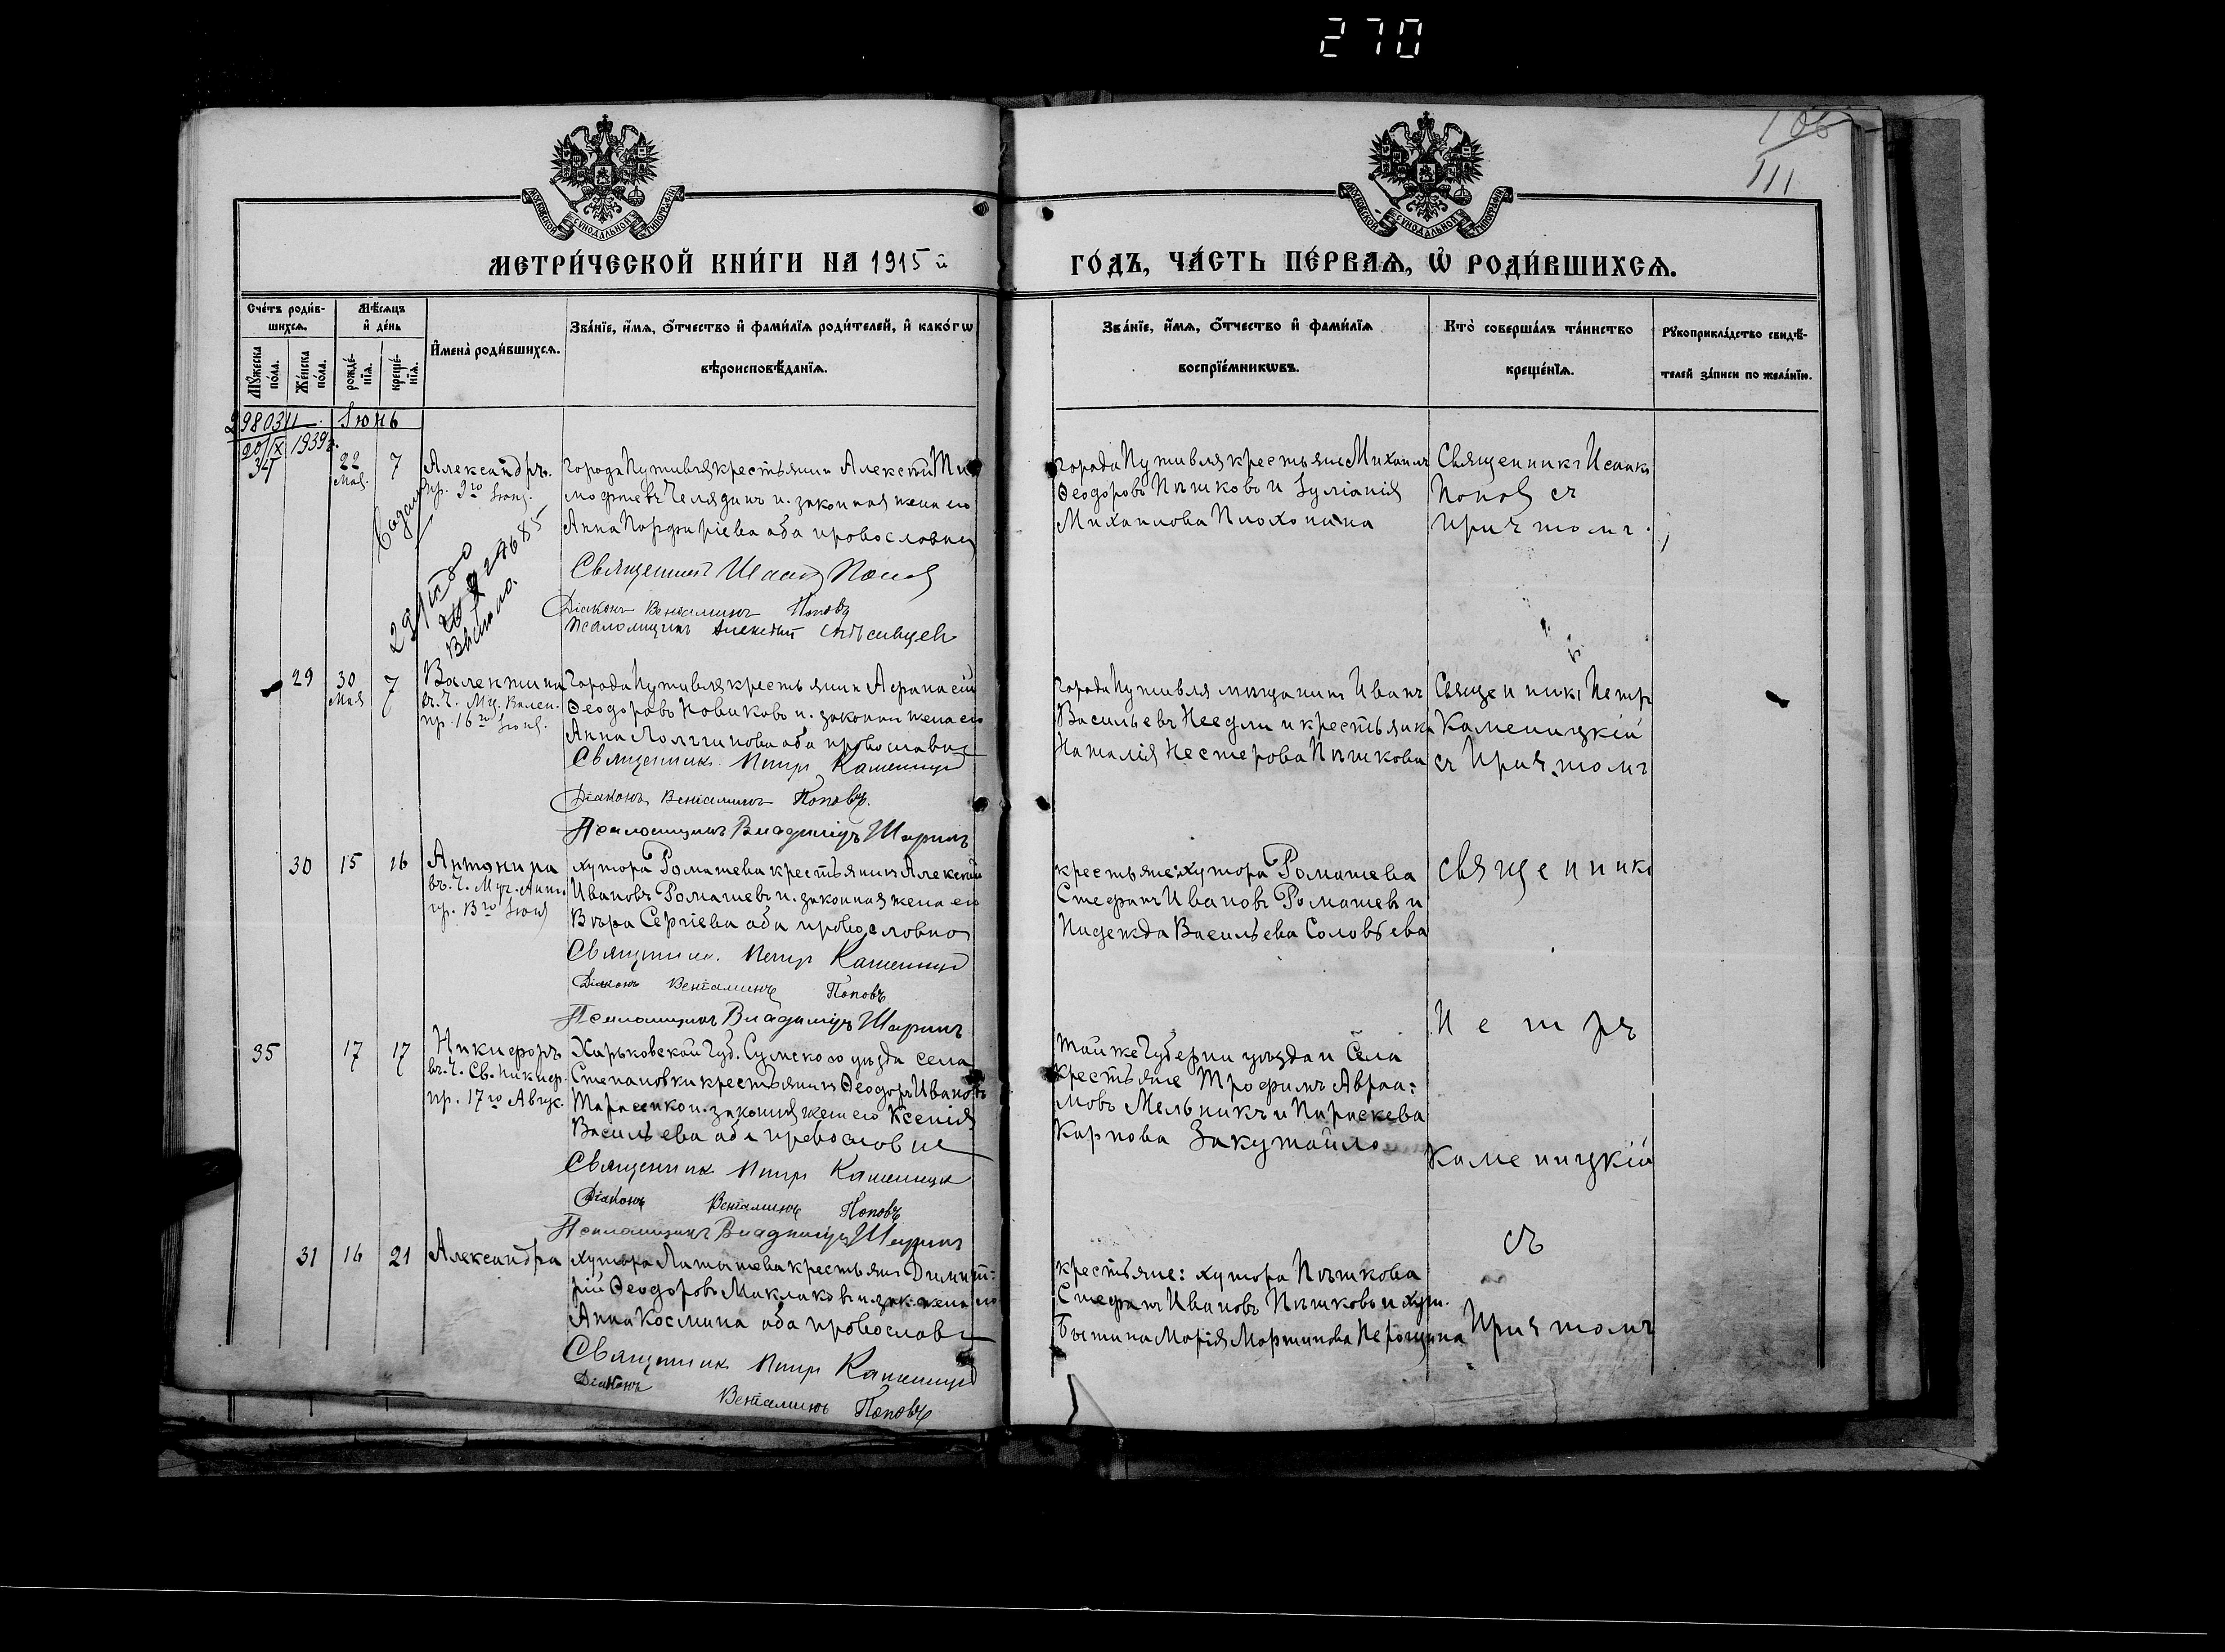 270
106
111
МОСКОВСКОЙ СУНОДАЛЬНОЙ ТИПОГРАФІИ
МОСКОВСКОЙ СУНОДАЛЬНОЙ ТИПОГРАФІИ
МЕТРИ́ЧЕСКОЙ КНИ́ГИ НА 1915 й
ГО́ДЪ, ЧА́СТЬ ПЕ́РВАѦ, Ѡ҆ РОДИ́ВШИХСѦ.
Сче́тъ роди́в-
шихсѧ.
Мѣ́сѧцъ
и҆ де́нь
Мꙋ́жеска по́ла.
Же́нска по́ла.
рожде́-нїѧ.
креще́-нїѧ.
И҆мена̀ роди́вшихсѧ.
Зва́нїе, и҆́мѧ, ѻ҆́тчество и҆ фами́лїѧ роди́телей, и҆ како́гѡ
вѣроисповѣ́данїѧ.
Зва́нїе, и҆́мѧ, ѻ҆́тчество и҆ фами́лїѧ
воспрїе́мникѡвъ.
Кто̀ соверша́лъ та́инство
креще́нїѧ.
Рꙋкоприкла́дство свидѣ́-
телей за́писи по жела́нїю.
298034
Іюнь
20/IX 1939 г.
34
22
Мая
7
Александръ.
пр. 9го Іюня.
города Путивля крестьянинъ Алексѣй Ти
мофѣевъ Челядинъ и законная жена его
Анна Порфиріева оба православны
Священникъ Исаакъ Поповъ
Діаконъ Веніаминъ Поповъ
Псаломщикъ Алексѣй
города Путивля крестьяне Михаилъ
Ѳеодоровъ Пѣшковъ и Іуліанія
Михаилова Плохонина
Священникъ Исаакъ
Поповъ съ
причтомъ.
29
30
Мая
7
Валентина
в. ч. Мц. Вален.
пр. 16го Іюня.
города Путивля крестьянинъ Аѳанасій
Ѳеодоровъ Новиковъ и законная жена его
Анна оба православные
Священникъ Петръ Каменицкій
Діаконъ Веніаминъ Поповъ.
Псаломщикъ Владиміръ Ширинъ
города Путивля мѣщанинъ Иванъ
Васильевъ и крестьянка
Наталія Нестерова Пѣшкова
Священникъ Петръ
Каменицкій
съ Причтомъ
30
15
16
Антонина
въ. ч. Муч. Ант.
пр. 13го Іюня
хутора Ромашева крестьянинъ Алексѣй
Ивановъ Ромашевъ и законная жена его
Вѣра Сергіева оба православно
Священникъ Петръ Каменицкій
Діаконъ Веніаминъ Поповъ
Псаломщикъ Владиміръ Ширинъ
крестьяне: хутора Ромашева
Стефанъ Ивановъ Ромашевъ и
Надежда Васильева Соловьева
Священникъ
Петръ
35
17
17
Никифоръ
въ. ч. Св. Никиф.
пр. 17го Авгус.
Харьковской Губ. Сумского уѣзда села
Степановки крестьянинъ Ѳеодоръ Ивановъ
Тарасенко и законная жена его Ксенія
Васильева оба православные
Священникъ Петръ Каменицкій
Діаконъ Веніаминъ Поповъ
Псаломщикъ Владиміръ Ширинъ
той же Губерніи уѣзда и Села
крестьяне Трофимъ Авраа:
мовъ Мельникъ и Параскева
Карпова Закутайло
Каменицкій
31
16
21
Александра
хутора Латышева крестьянинъ Димит:
рій Ѳеодоровъ Маклаковъ и зак. жена его
Анна Космина оба православ
Священникъ Петръ Каменицкій
Діаконъ Веніаминъ Поповъ
крестьяне: хутора Пѣшкова
Стефанъ Ивановъ Пѣшковъ и хут.
Марія Мартинова
съ
Причтомъ